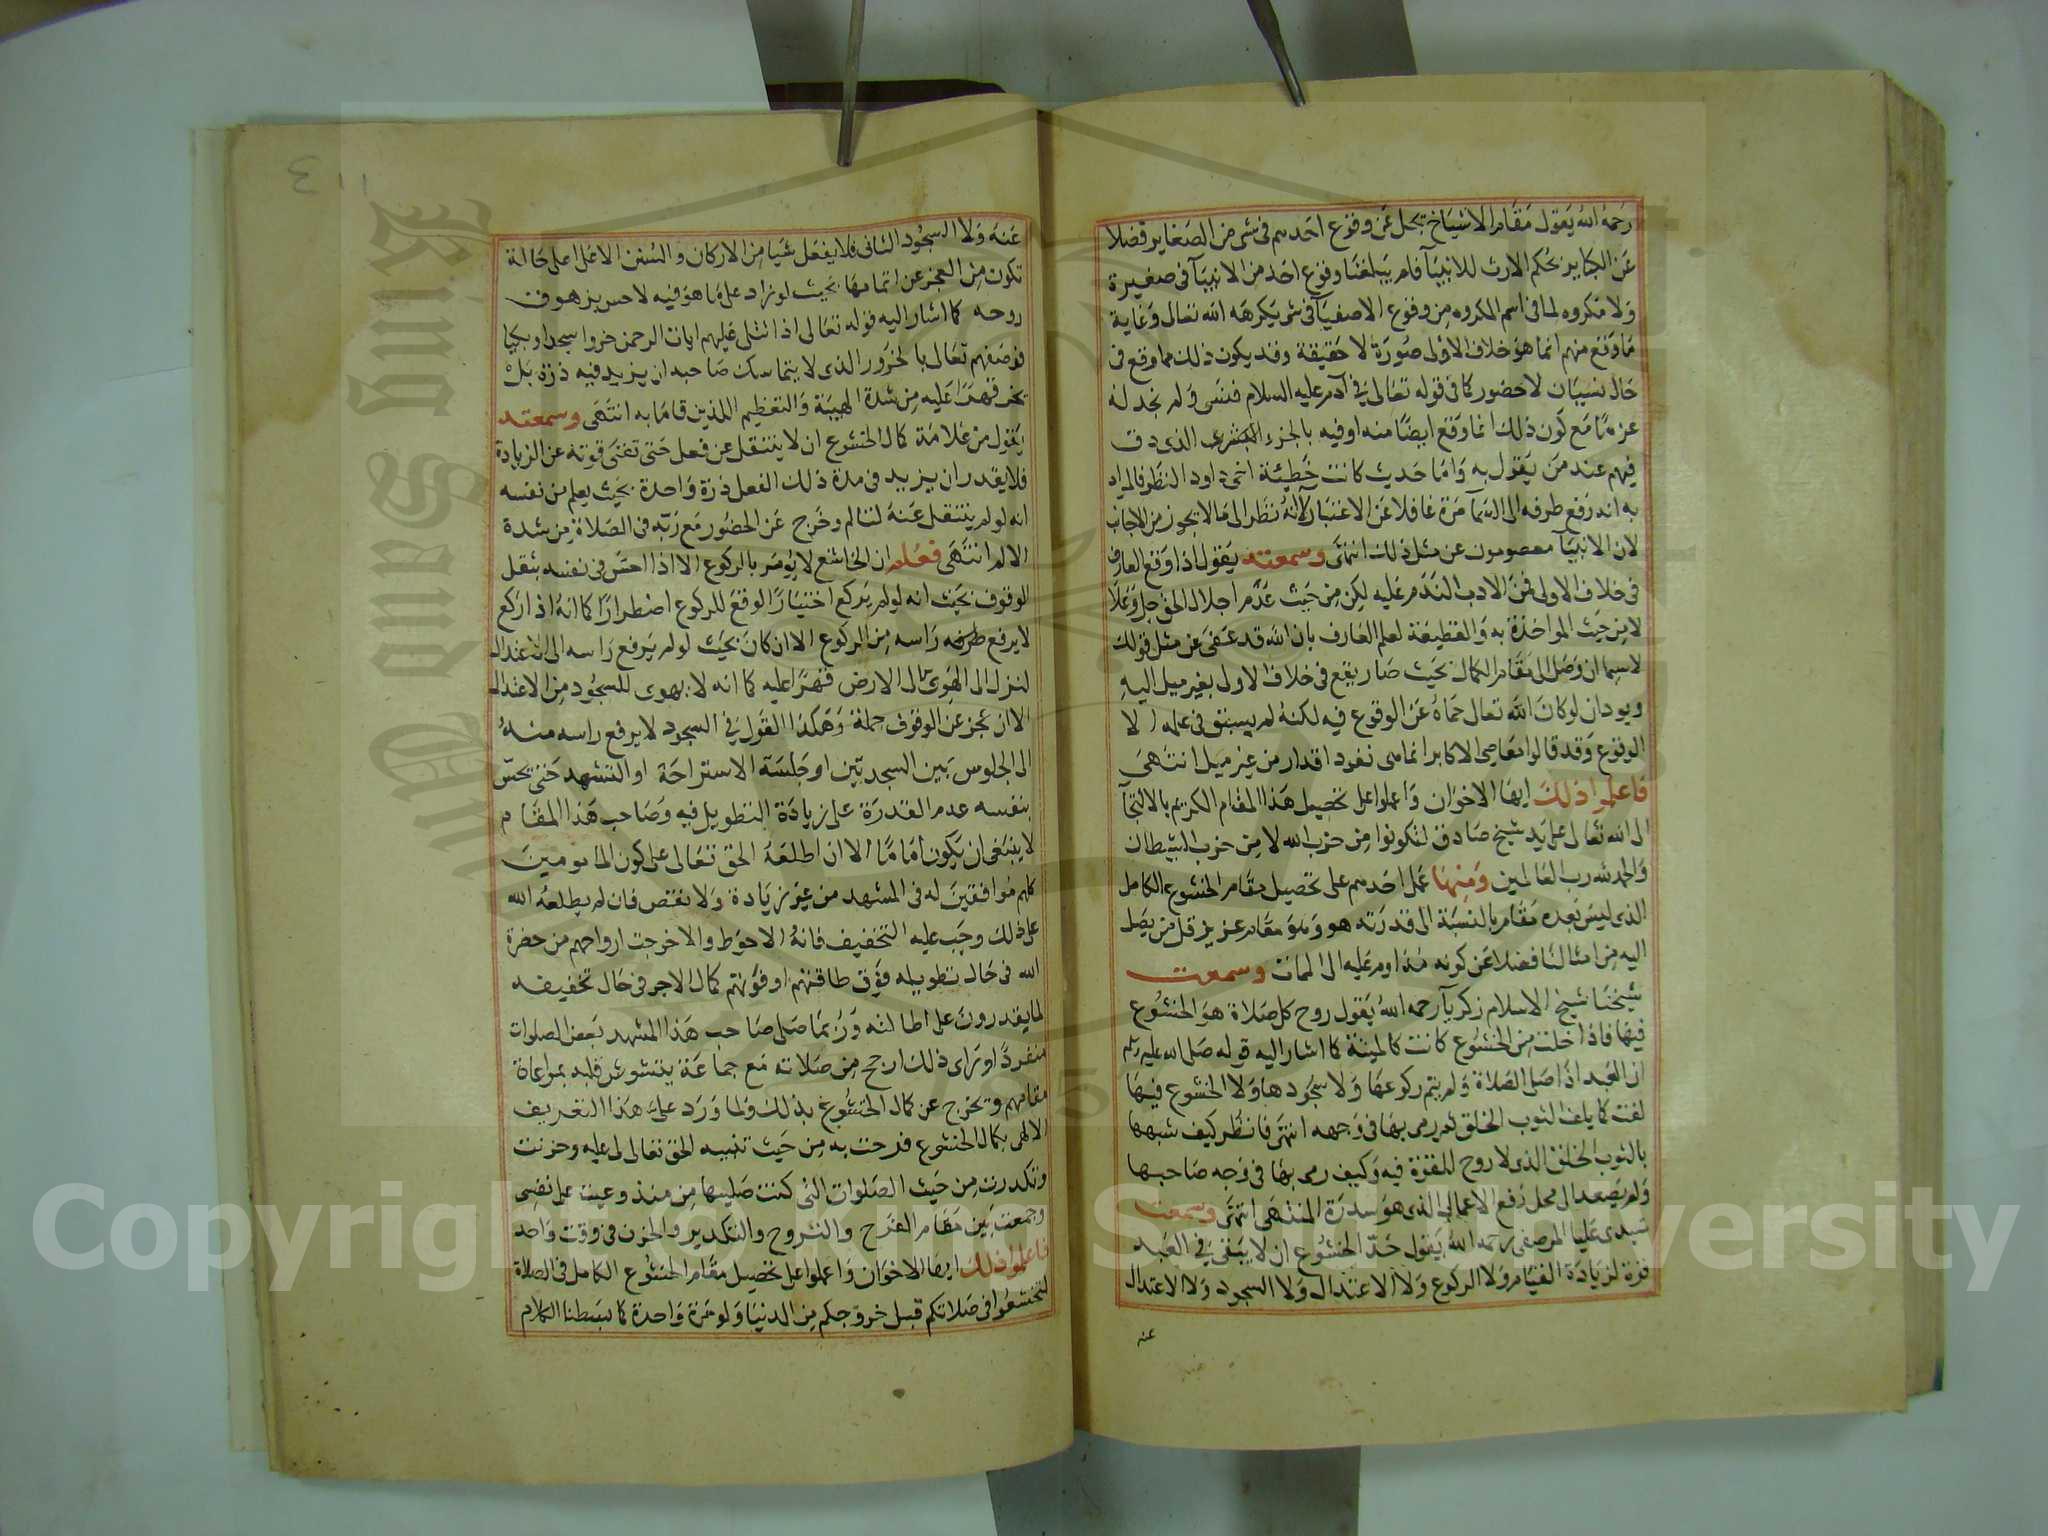 رحمه الله يقول مقام الاشياخ تجل عن وقوع احدهم في شي من الصغاير فضلا
عن الكباير بحكم الارث للانبيآ فلم يبلغنا وقوع احد من الانبيآ في صغيرة
ولا مكروه لما في اسم المكروه من وقوع الاصفيآ في شي يكرهه الله تعالى وغاية
ما وقع منهم انما هو خلاف الاولى صورة لا حقيقة وقد يكون ذلك مما وقع في
حال نسيان لا حضور كما في قوله تعالى في آدم عليه السلام فنسى ولم نجد له
عزما مع كون ذلك انما وقع ايضا منه او فيه بالجزء البشرى الذى دق
فيهم عند من يقول به واما حديث كانت خطيئة اخى داود النظر فالمراد
به انه رفع طرفه الى السمآ مرة غافلا عن الاعتبار لانه نظر الى ما لا يجوز من الاجانب
لان الانبيآ معصومون عن مثل ذلك انتهى وسمعته يقول اذا وقع العارف
في خلاف الاولى فمن الادب الندم عليه لكن من حيث عدم اجلال الحق جل وعلا
لا من حيث المواخذة به والقطيعة لعلم العارف بان الله قد عفى عن مثل ذلك
لا سيما ان وصل الى مقام الكمال بحيث صار يقع في خلاف الاولى بغير ميل اليه
ويود ان لو كان الله تعالى حماه عن الوقوع فيه لكنه لم يسبق في علمه الا
الوقوع وقد قالوا معاصى الاكابر انما هى نفوذ اقدار من غير ميل انتهى
فاعلموا ذلك ايها الاخوان واعملوا على تحصيل هذا المقام الكريم بالالتجآ
الى الله تعالى على يد شيخ صادق لتكونوا من حزب الله لا من حزب الشيطان
والحمد لله رب العالمين ومنها عمل احدهم على تحصيل مقام الخشوع الكامل
الذى ليس بعده مقام بالنسبة الى قدرته هو وهو مقام عزيز قل من يصل
اليه من امثالنا فضلا عن كونه مداوم عليه الى الممات وسمعت
شيخنا شيخ الاسلام زكريآ رحمه الله يقول روح كل صلاة هو الخشوع
فيها فاذا خلت من الخشوع كانت كالميتة كما اشار اليه قوله صلى الله عليه وسلم
ان العبد اذا صلى الصلاة ولم يتم ركوعها ولا سجودها ولا الخشوع فيها
لفت كما يلف الثوب الخلق ثم رمى بها في وجهه انتهى فانظر كيف شبهها
بالثوب الخلق الذى لا روح للمقوة فيه وكيف رمى بها في وجه صاحبها
ولم يصعد الى محل رفع الاعمال الذى هو سدرة المنتهى انتهى وسمعت
سيدى عليا المرصفى رحمه الله يقول حد الخشوع ان لا يبقى في العبد
قوة لزيادة القيام ولا الركوع ولا الاعتدال ولا السجود ولا الاعتدال
عنه
٤١١
عنه ولا السجود الثانى فلا يفعل شيا من الاركان والسنن الا على اعلى حالة
تكون من العجز عن اتمامها بحيث لو زاد على ما هو فيه لاحس بزهوق
روحه كما اشار اليه قوله تعالى اذا تتلى عليهم ايات الرحمن خروا سجدا وبكيا
فوصفهم تعالى بالخرور الذى لا يتماسك صاحبه ان يزيد فيه ذرة بل
يخر قهرا عليه من شدة الهيبة والتعظيم اللذين قاما به انتهى وسمعته
يقول من علامة كمال الخشوع ان لا ينتقل عن فعل حتى تفنى قوته عن الزيادة
فلا يقدر ان يزيد في مدة ذلك الفعل ذرة واحدة بحيث يعلم من نفسه
انه لو لم ينتقل عنه لتالم وخرج عن الحضور مع ربه في الصلاة من شدة
الالم انتهى فعلم ان الخاشع لا يؤمر بالركوع الا اذا احس في نفسه بثقل
الوقوف بحيث انه لو لم يركع اختيارا لوقع للركوع اضطرارا كما انه اذا ركع
لا يرفع طرفه راسه من الركوع الا ان كان بحيث لو لم يرفع راسه الى الاعتدال
لنزل الى الهوى الى الارض قهرا عليه كما انه لا يهوى للسجود من الاعتدال
الا ان عجز عن الوقوف جملة وهكذا القول في السجود لا يرفع راسه منه
الى الجلوس بين السجدتين او جلسة الاستراحة او التشهد حتى يحس
بنفسه عدم القدرة على زيادة التطويل فيه وصاحب هذا المقام
لا ينبغى ان يكون اماما الا ان اطلعه الحق تعالى على كون المامومين
كلهم موافقين له في المشهد من غير زيادة ولا نقص فان لم يطلعه الله
على ذلك وجب عليه التخفيف فانه الاحوط والا خرجت ارواحهم من حضرة
الله في حال تطويله فوق طاقتهم او فوتهم كمال الاجر في حال تخفيفه
لما يقدرون على اطالته وربما صلى صاحب هذا المشهد بعض الصلوات
منفردا وراى ذلك ارجح من صلاته مع جماعة يتشوش قلبه بمراعاة
مقامهم وتخرج عن كمال الخشوع بذلك ولما ورد على هذا التعريف
الالهى بكمال الخشوع فرحت به من حيث تنبيه الحق تعالى لى عليه وحزنت
وتكدرت من حيث الصلوات التى كنت صليتها من منذ وعيت على نفسى
وجمعت بين مقام الفرح والتروح والتكدير والحزن في وقت واحد
فاعلموا ذلك ايها الاخوان واعملوا على تحصيل مقام الخشوع الكامل في الصلاة
لتخشعوا في صلاتكم قبل خروجكم من الدنيا ولو مرة واحدة كما بسطنا الكلام
King Saud University
Copyright © King Saud University